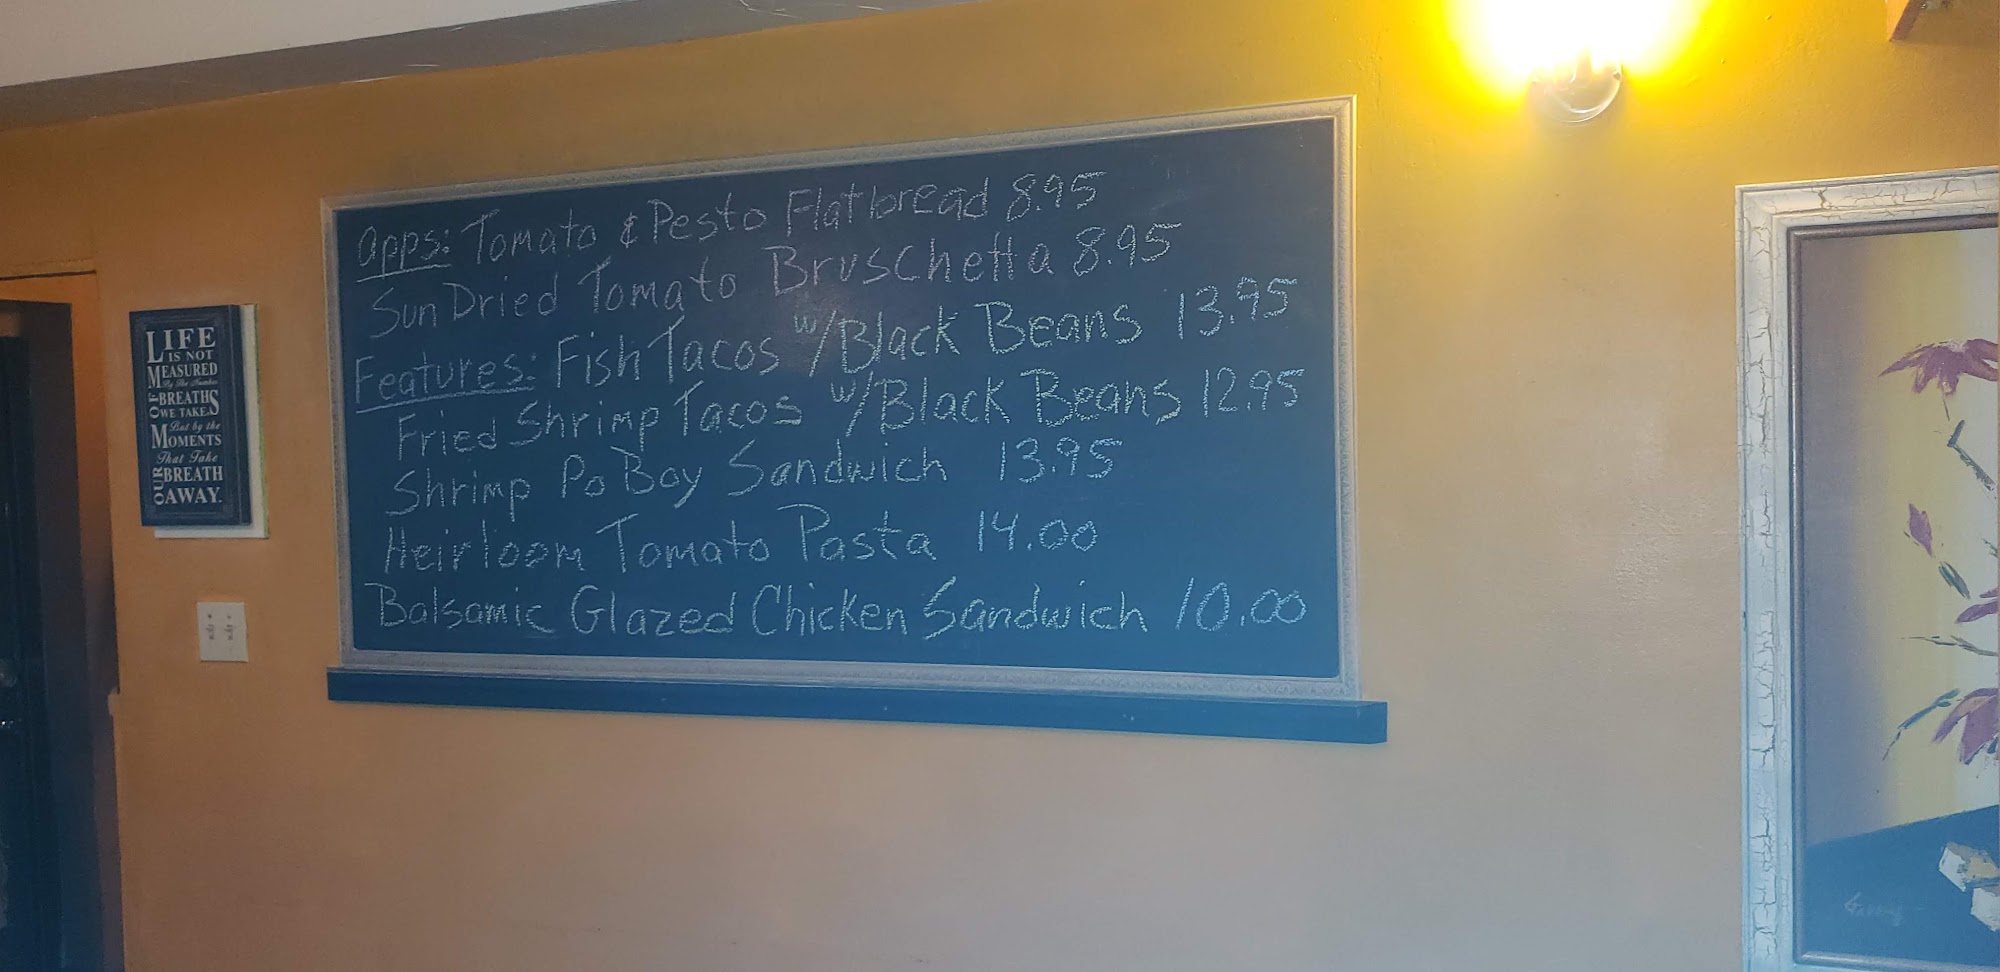 apps: Tomato & Pesto Flatbread 8.95
Sun Dried Tomato Bruschetta 8.95
Features: Fish Tacos w/Black Beans 13.95
Fried Shrimp Tacos w/Black Beans 12.95
Shrimp Po Boy Sandwich 13.95
Heirloom Tomato Pasta 14.00
Balsamic Glazed Chicken Sandwich 10.00
LIFE
IS NOT
MEASURED
By The Number
OF BREATHS
WE TAKE
But by the
MOMENTS
That Take
OUR BREATH
AWAY.